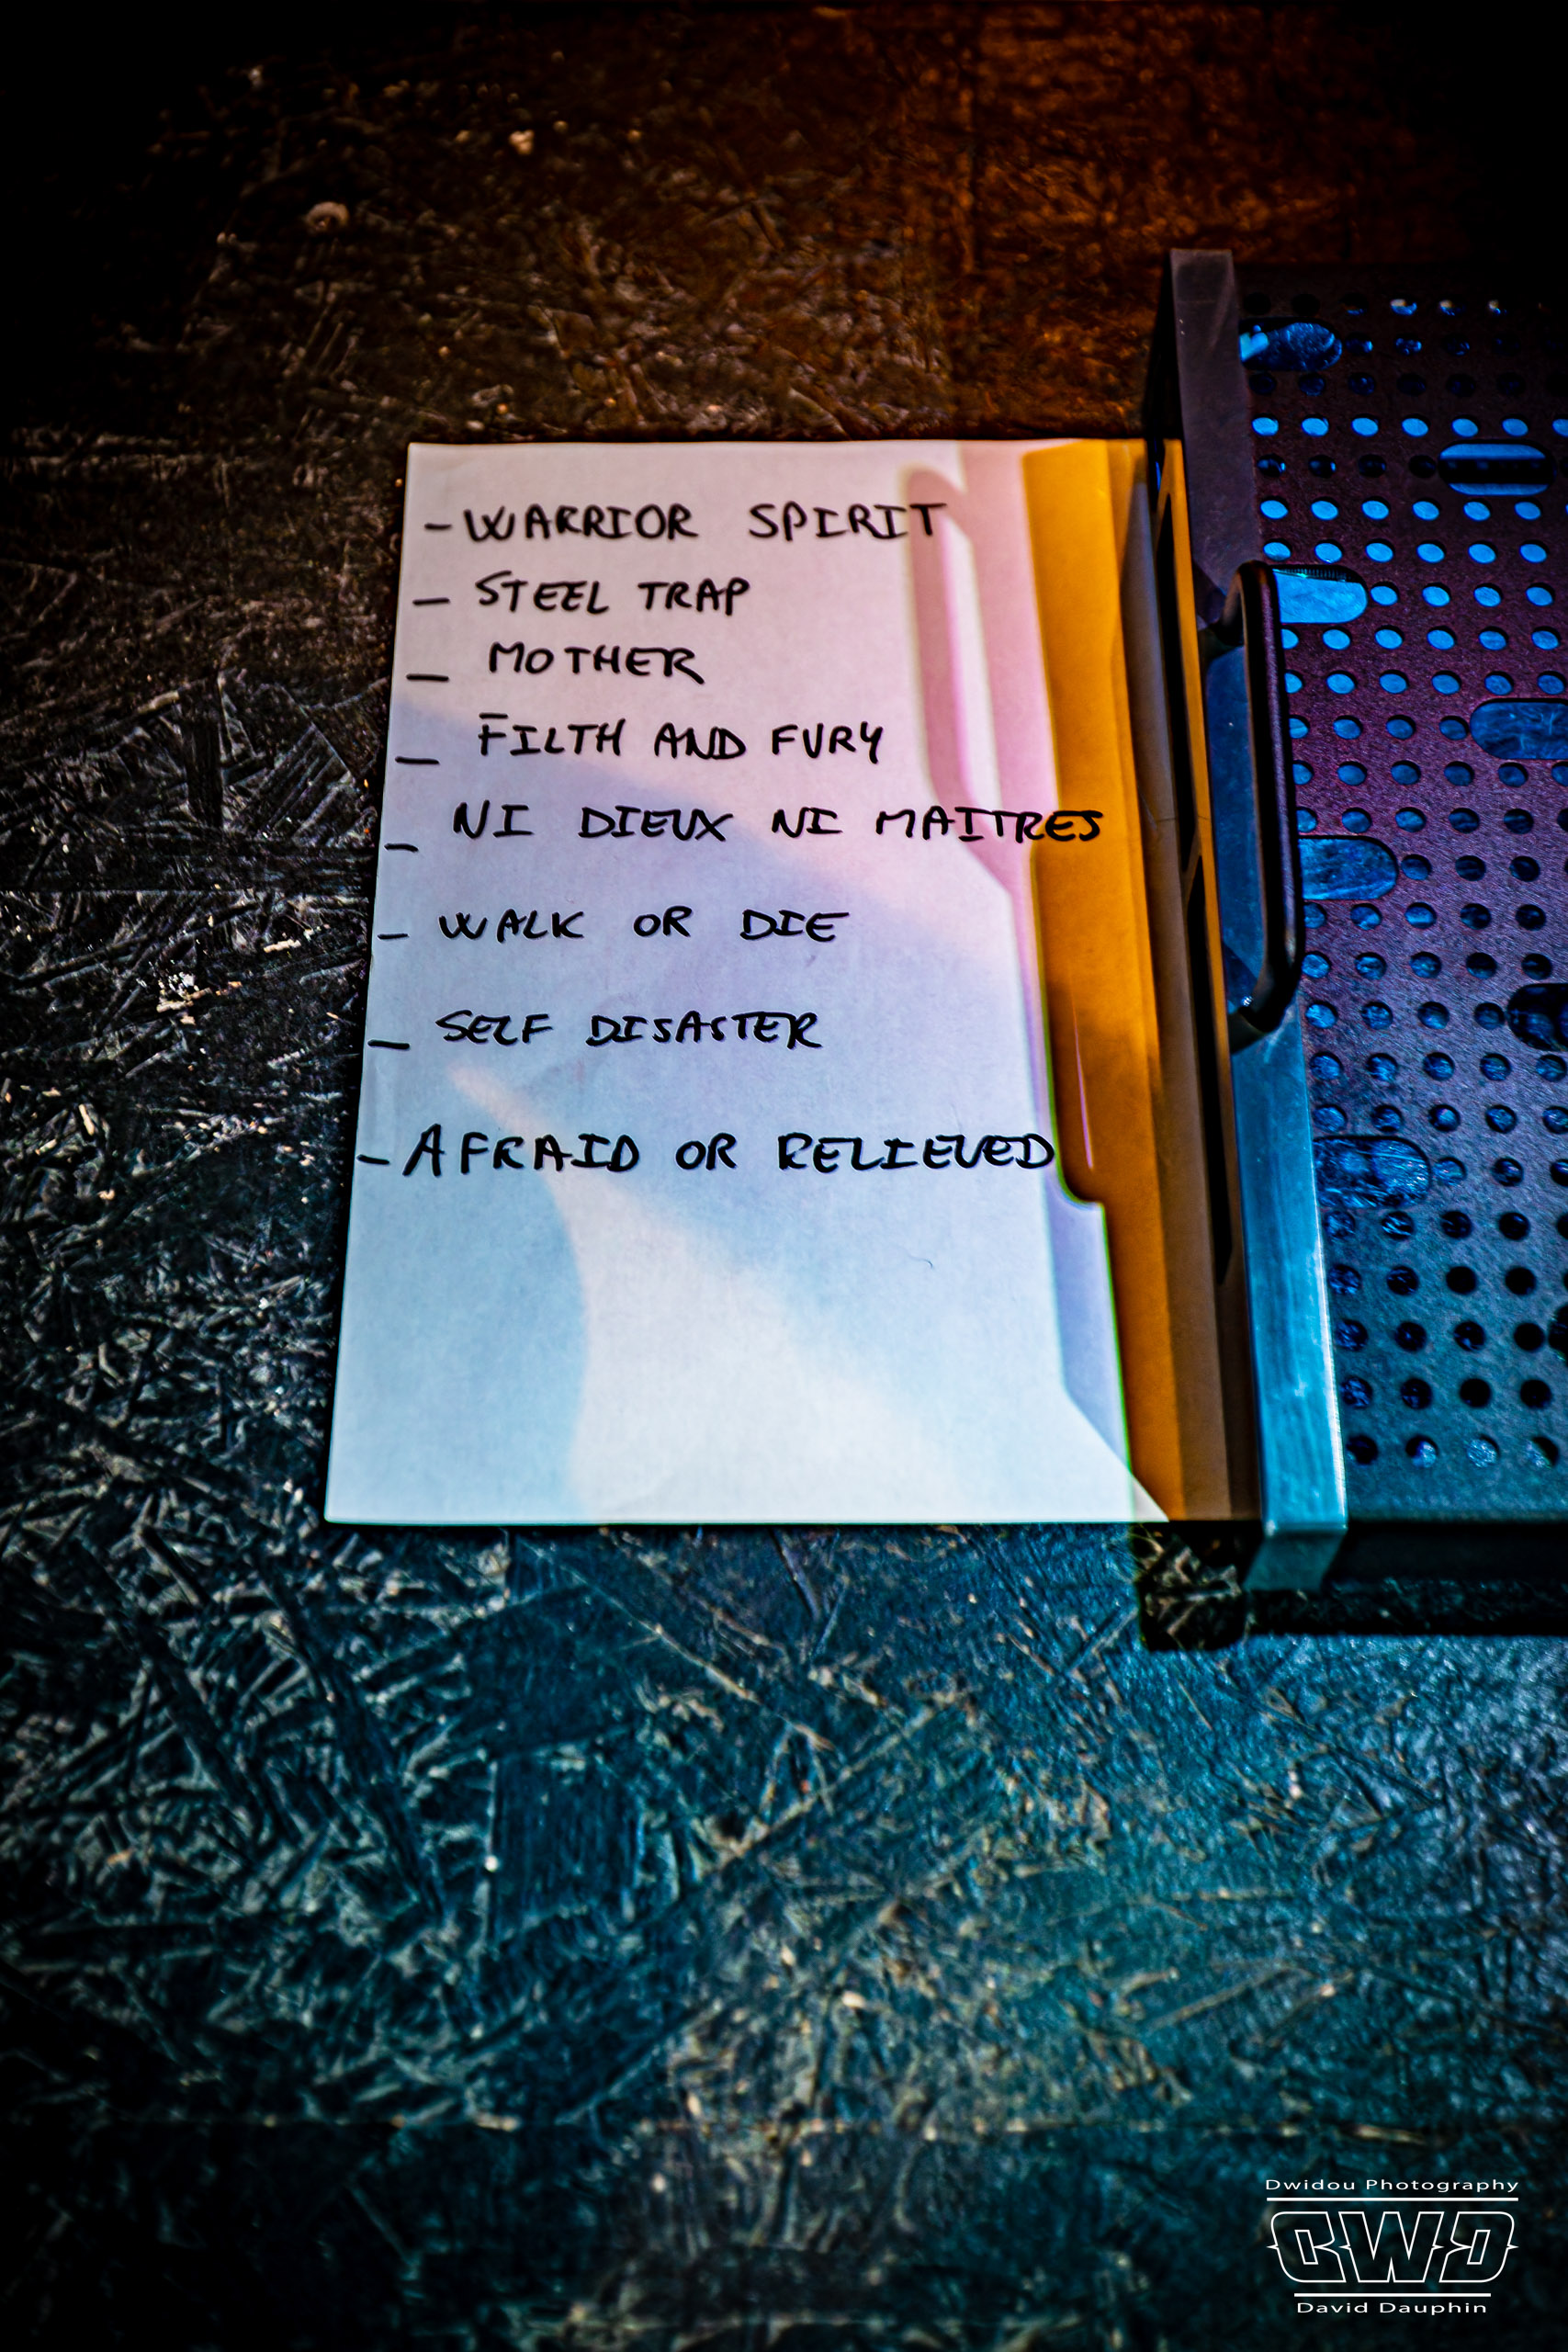 - WARRIOR SPIRIT
- STEEL TRAP
- MOTHER
- FILTH AND FURY
- NI DIEUX NI MAITRES
- WALK OR DIE
- SELF DISASTER
- AFRAID OR RELIEVED
Dwidou Photography
DWD
David Dauphin